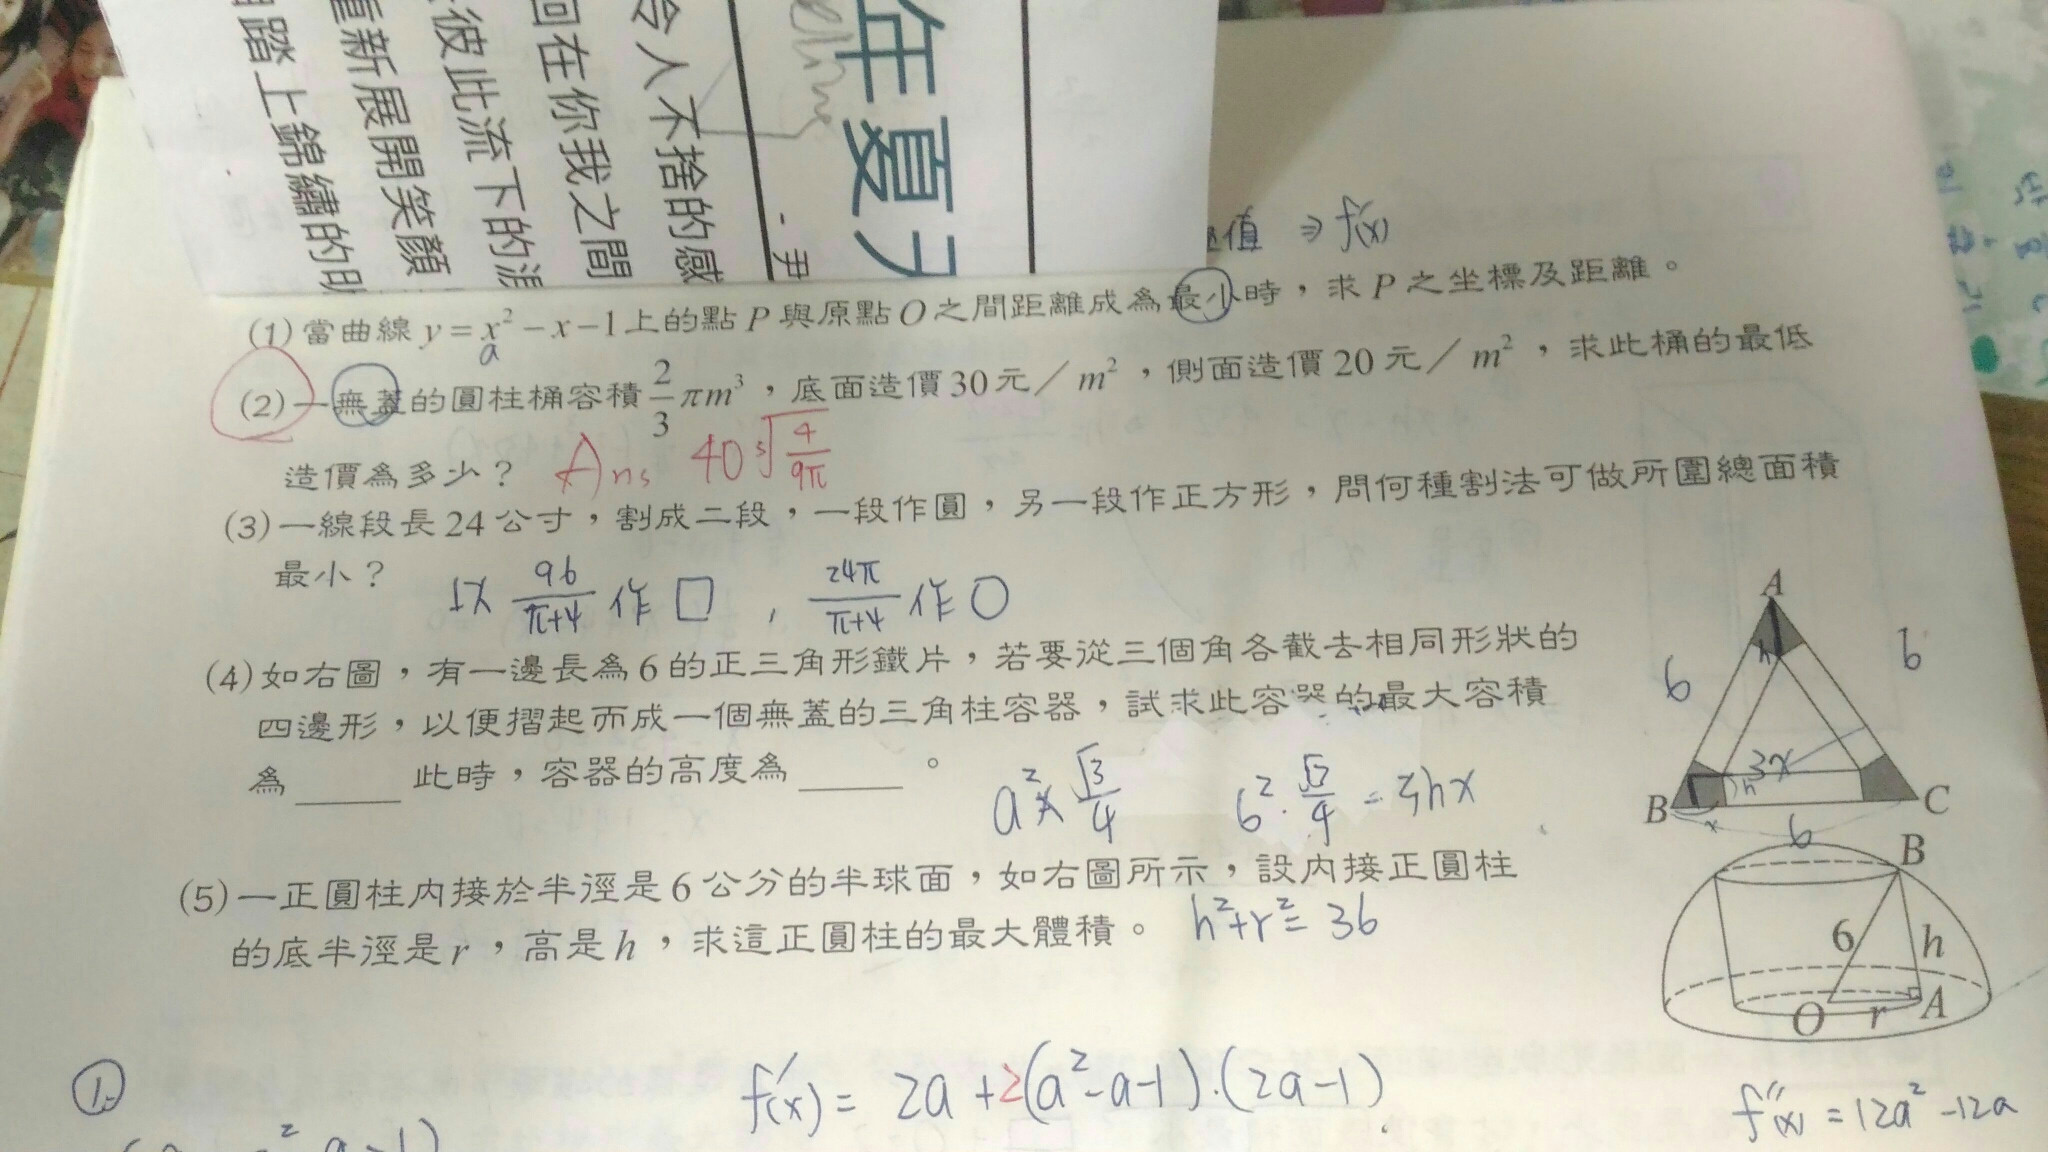 年夏
令人不捨的感
回在你我之間
彼此流下的
重新展開笑顏
踏上錦繡的
- 尹
值 ⇒ f'(x)
(1) 當曲線 y = x² − x − 1 上的點 P 與原點 O 之間距離成為最小時，求 P 之坐標及距離。
a
(2) 一無蓋的圓柱桶容積 2/3 πm³，底面造價 30 元／m²，側面造價 20 元／m²，求此桶的最低
造價為多少？ Ans 40 ³√(4/9π)
(3) 一線段長 24 公寸，割成二段，一段作圓，另一段作正方形，問何種割法可做所圍總面積
最小？ 以 96/(π+4) 作 □ , 24π/(π+4) 作 ○
(4) 如右圖，有一邊長為 6 的正三角形鐵片，若要從三個角各截去相同形狀的
四邊形，以便摺起而成一個無蓋的三角柱容器，試求此容器的最大容積
為 ______ 此時，容器的高度為 ______ 。
a² × √3/4 6² · √3/4 = 3hx
A
h
6 6
3x
h
B C
x 6
(5) 一正圓柱內接於半徑是 6 公分的半球面，如右圖所示，設內接正圓柱
的底半徑是 r，高是 h，求這正圓柱的最大體積。 h² + r² = 36
B
6 h
O r A
1.
f'(x) = 2a + 2(a² − a − 1)·(2a − 1)
f''(x) = 12a² − 12a